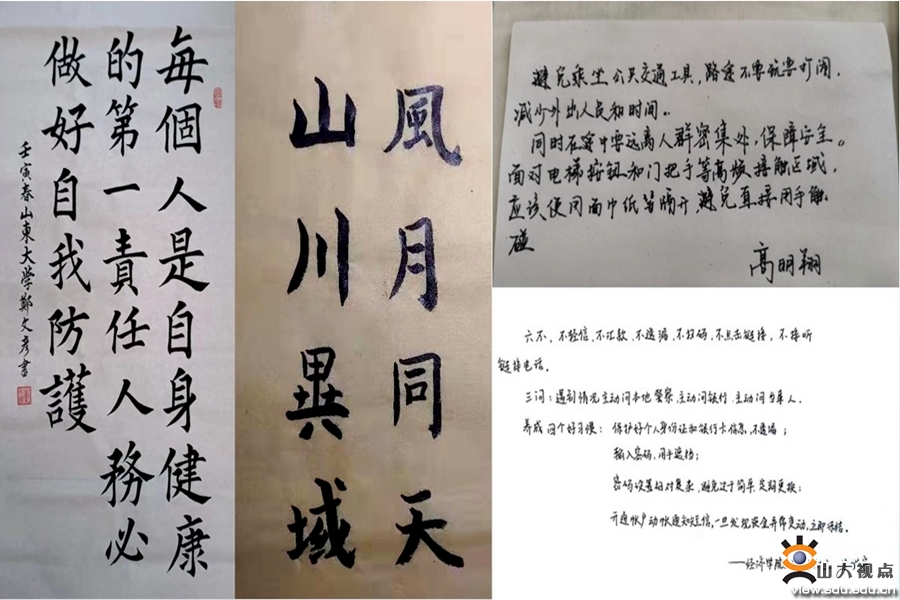 每個人是自身健康
的第一責任人務必
做好自我防護
壬寅春山東大學鄭文彥書
風月同天
山川異域
避免乘坐公共交通工具,路途不要玩耍打闹,
减少外出人员和时间。
同时在途中要远离人群密集处,保障安全。
面对电梯按钮和门把手等高频接触区域,
应该使用面巾纸等隔开避免直接用手触
碰
高明翔
六不,不轻信,不汇款,不透漏,不扫码,不点击链接,不接听
转接电话。
三问:遇到情况主动问本地警察,主动问银行,主动问当事人。
养成四个好习惯:保护好个人身份证和银行卡信息,不透漏;
输入密码,用手遮挡;
密码设置相对复杂,避免过于简单,定期更换;
开通帐户动帐通知短信,一旦发现资金异常变动,立即冻结。
——经济学院
山大视点
view.sdu.edu.cn